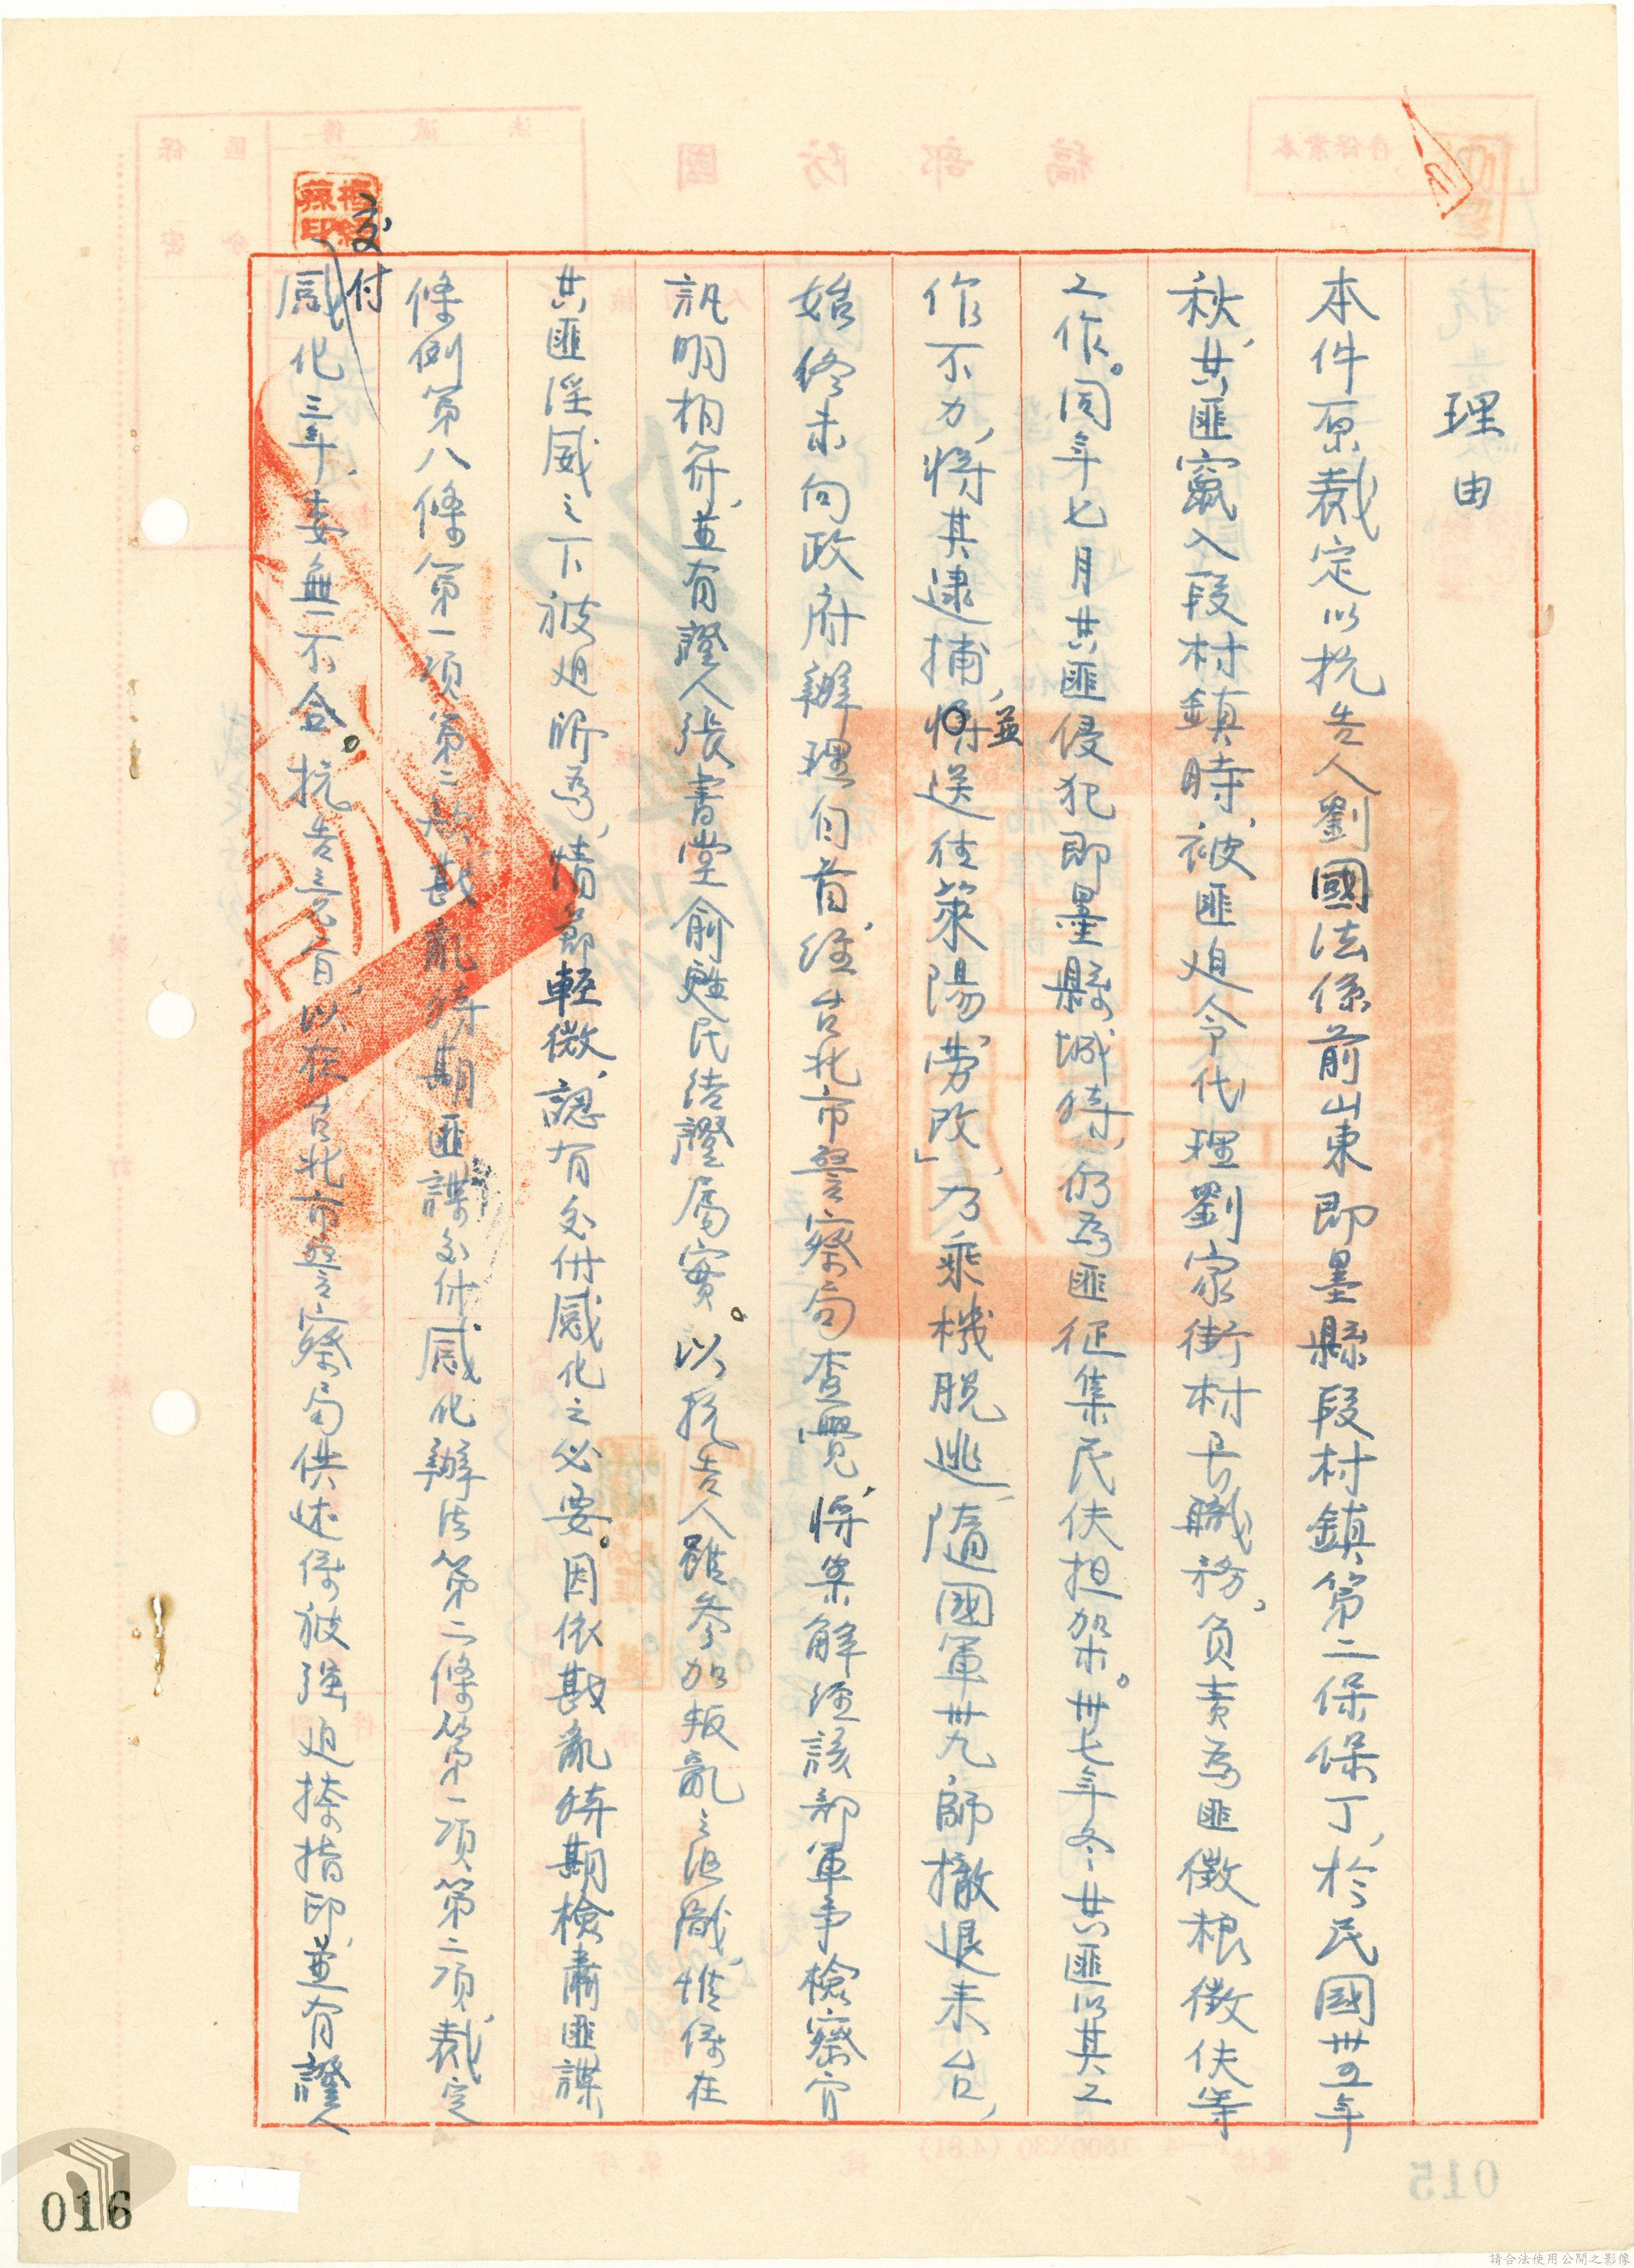 理由
本件原裁定以抗告人劉國法係前山東即墨縣段村鎮第二保保丁，於民國卅五年
秋，共匪竄入段村鎮時，被匪迫令代理劉家街村長職務，負責為匪徵粮徵伕等
工作。同年七月共匪侵犯即墨縣城時，仍為匪征集民伕担架。卅七年冬，共匪以其工
作不力，將其逮捕，並送往萊陽「勞改」，乃乘機脱逃，隨國軍卅九師撤退来台，
始終未向政府辦理自首，經台北市警察局查覺，將案解經該部軍事檢察官
訊明相符，並有證人張書堂俞魁民結證屬實。以抗告人雖參加叛亂之組織，惟係在
共匪淫威之下被迫所為，情節輕微，認有交付感化之必要。因依戡亂時期檢肅匪諜
條例第八條第一項第二款，戡亂時期匪諜交付感化辦法第二條第一項第二項，裁定
交付
感化三年，委無不合。抗告意旨，以在台北市警察局供述係被強迫捺指印，並有證人
國防部稿
015
016
請合法使用公開之影像